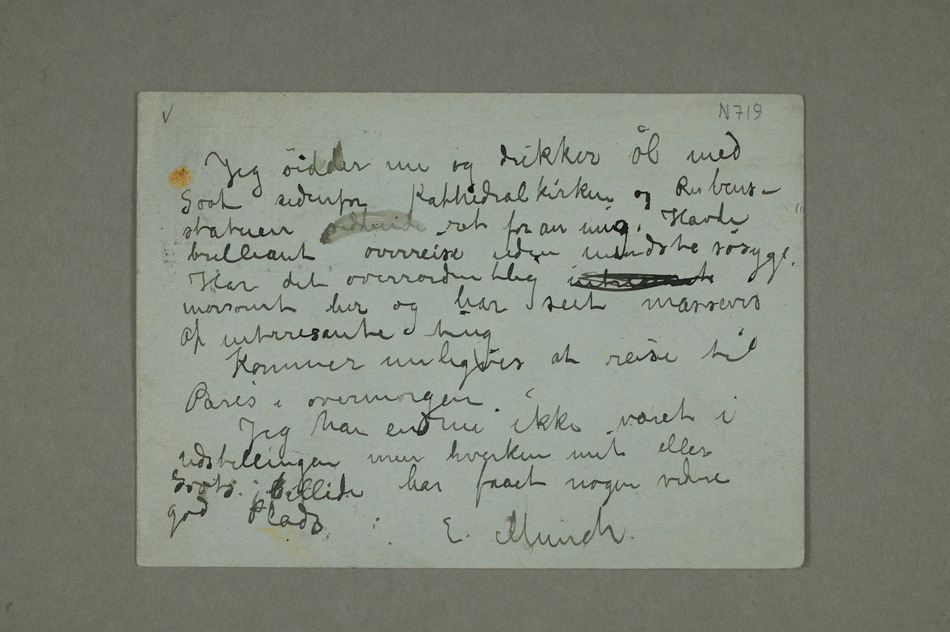 N 719
Jeg sidder nu og drikker öl med
Soot udenfor Kathedralkirken og Rubens-
statuen ret foran mig. Havde
brilliant overreise uden mindste sösyge.
Har det overordentlig
morsomt her og har seet massevis
af interesante ting
Kommer muligvis at reise til
Paris i overmorgen.
Jeg har endnu ikke været i
udstillingen men hverken mit eller
Soots Billede har faaet nogen videre
god Plads
E. Munch